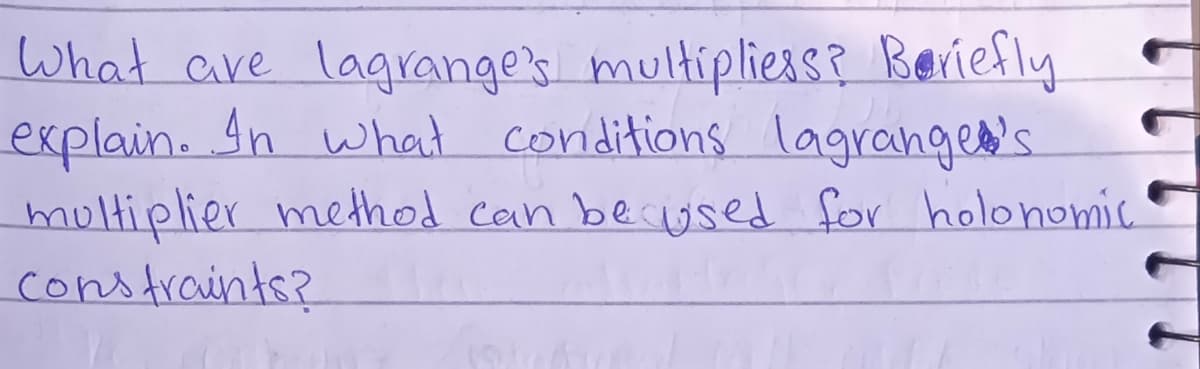 What are lagrange's multipliess? Beriefly
explain. In what conditions lagrange's
multiplier method can be used for holonomic
constraints?